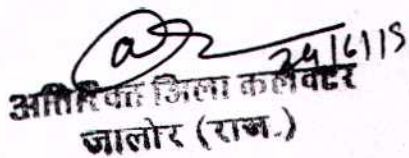 29/6/15
अतिरिक्त जिला कलेक्टर
जालोर (राज.)